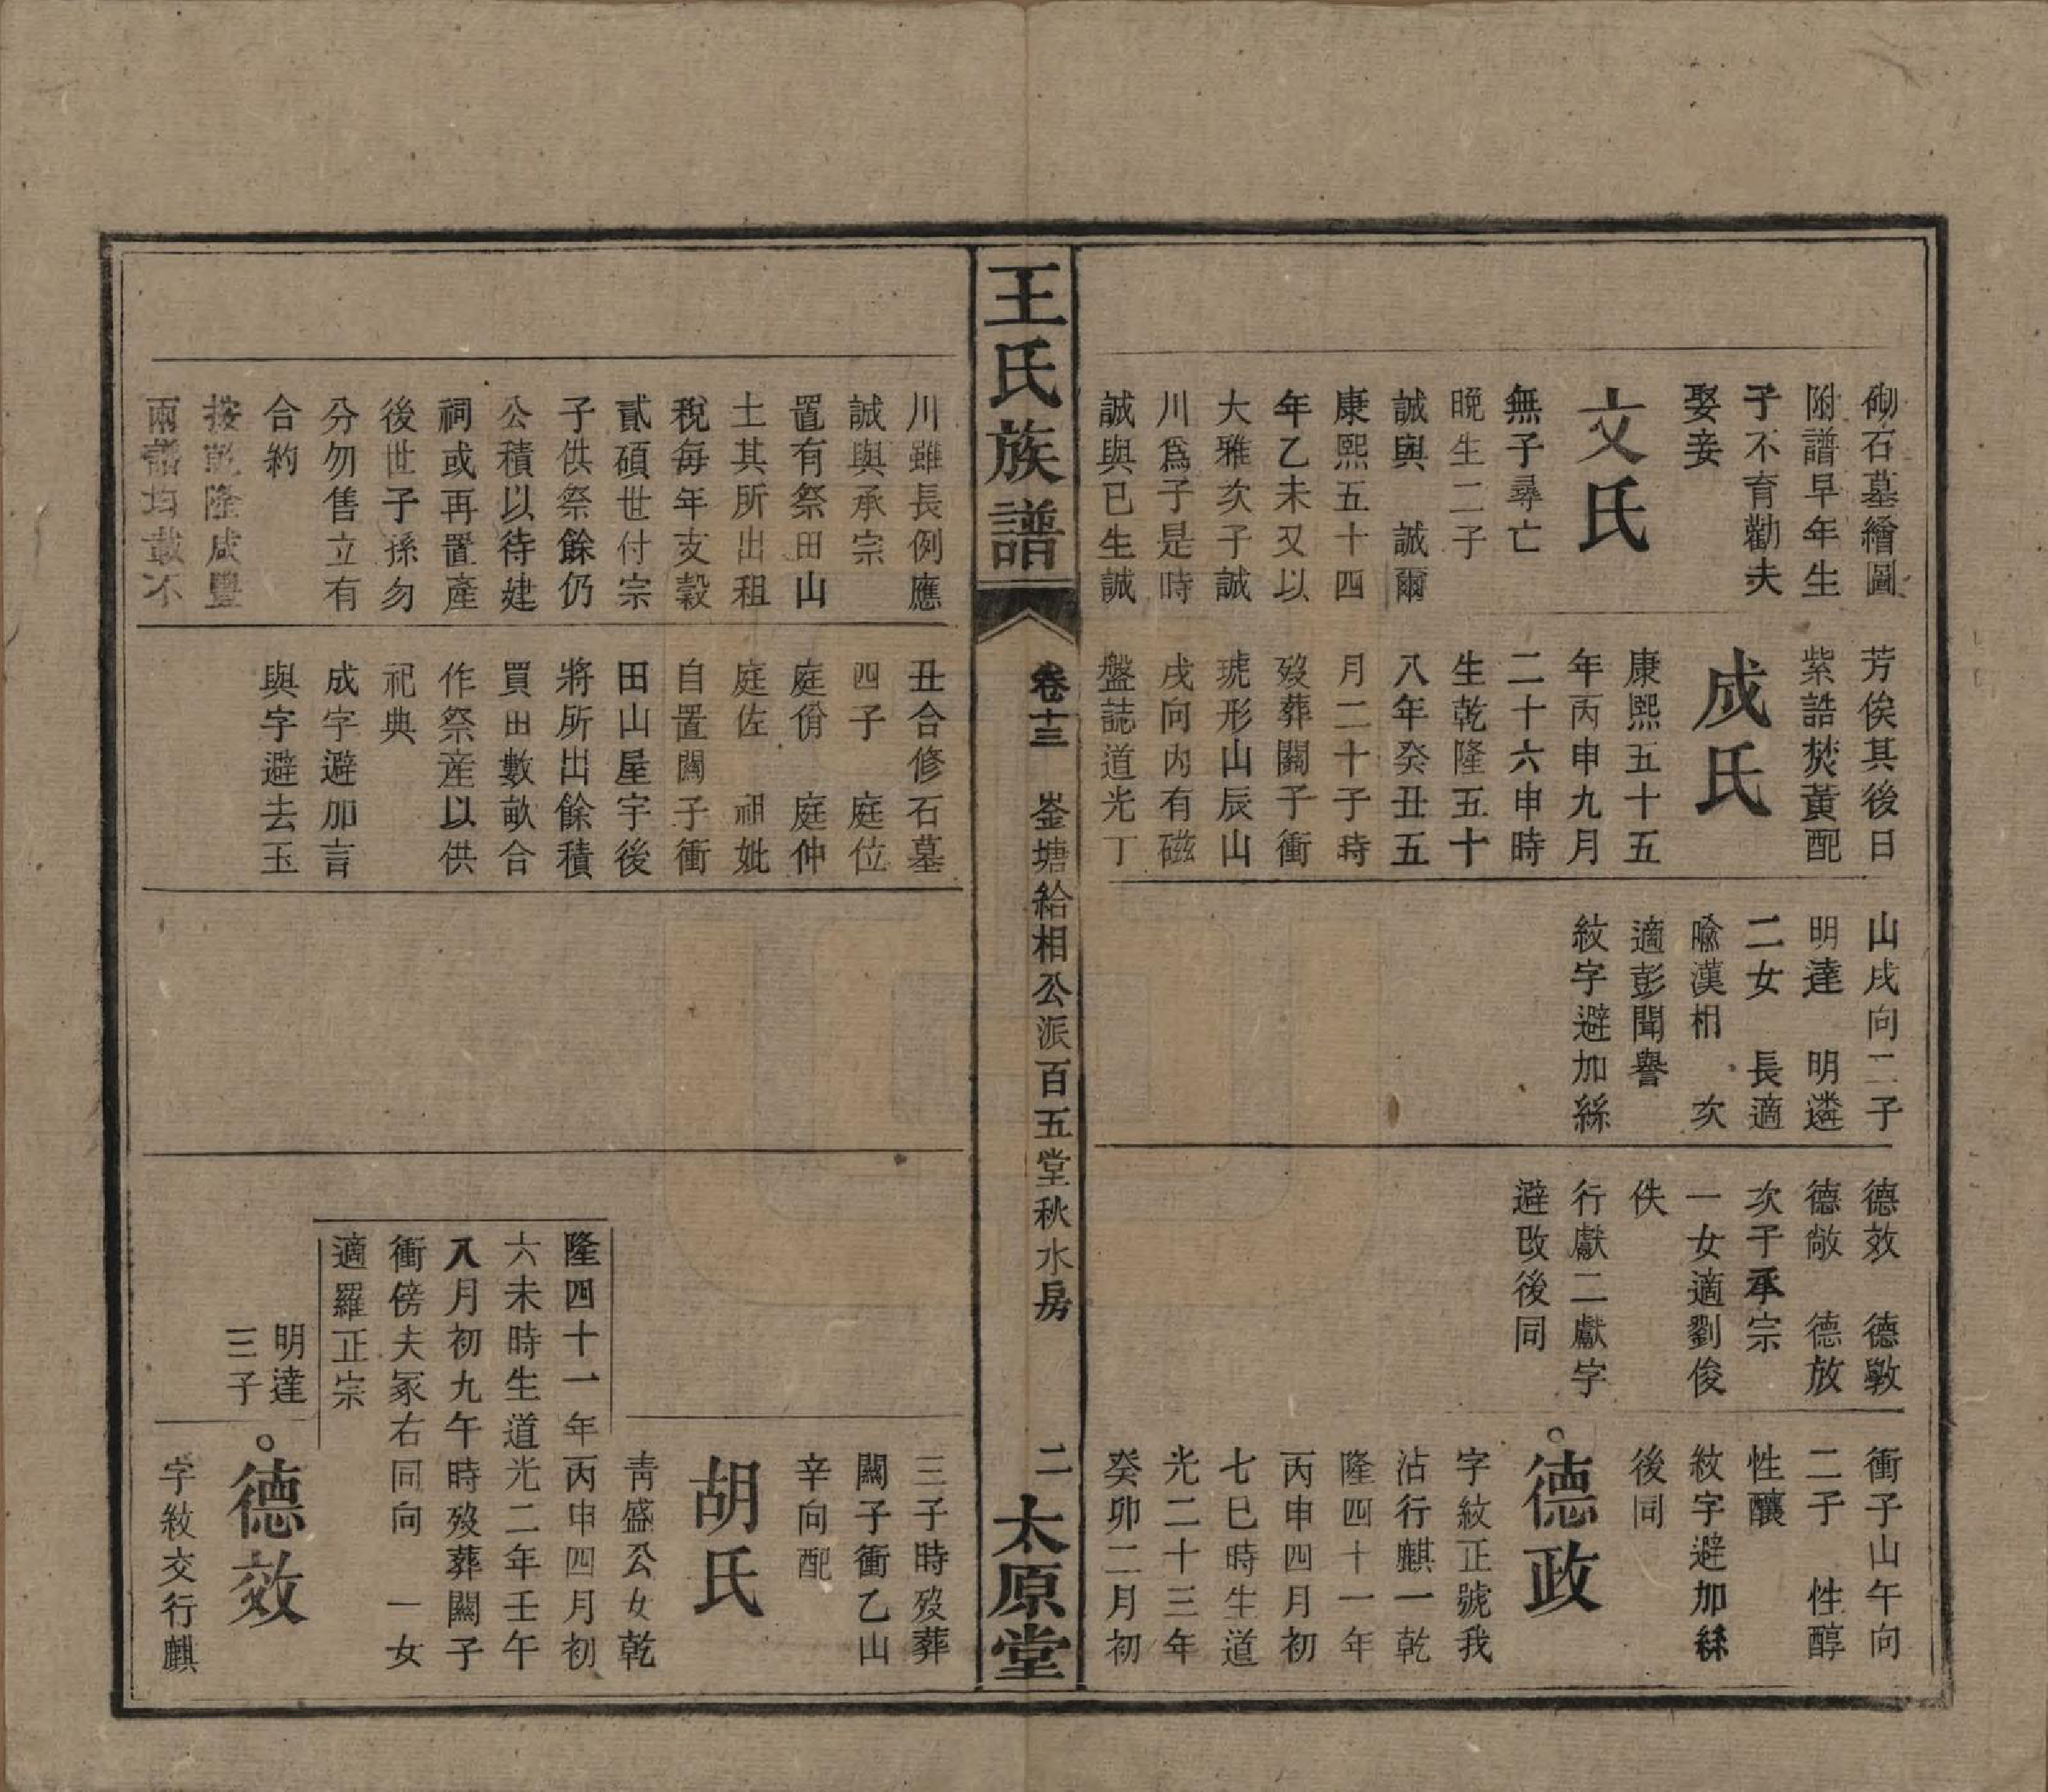 砌石墓繪圖
附譜早年生
子不育勸夫
娶妾
文氏
無子尋亡
晚生二子
誠與　誠爾
康熙五十四
年乙未又以
大雅次子誠
川爲子是時
誠與已生誠
芳俟其後日
紫誥焚黃配
成氏
康熙五十五
年丙申九月
二十六申時
生乾隆五十
八年癸丑五
月二十子時
歿葬關子衝
琥形山辰山
戌向內有磁
盤誌道光丁
山戌向二子
明達　明遴
二女　長適
喩漢相　次
適彭聞譽
紋字避加絲
德效　德斆
德敞　德放
次子承宗
一女適劉俊
佚
行獻二獻字
避改後同
衝子山午向
二子　性醇
性釀
紋字避加絲
後同
德政
字紋正號我
沾行麒一乾
隆四十一年
丙申四月初
七巳時生道
光二十三年
癸卯二月初
王氏族譜
卷十三　崟塘給相公派百五堂秋水房
二
太原堂
川雖長例應
誠與承宗
置有祭田山
土其所出租
稅每年支穀
貳碩世付宗
子供祭餘仍
公積以待建
祠或再置產
後世子孫勿
分勿售立有
合約
按乾隆咸豐
兩譜均載不
丑合修石墓
四子　庭位
庭佾　庭伸
庭佐　祖妣
自置關子衝
田山屋宇後
將所出餘積
買田數畝合
作祭産以供
祀典
成字避加言
與字避去玉
三子時歿葬
關子衝乙山
辛向配
胡氏
青盛公女乾
隆四十一年丙申四月初
六未時生道光二年壬午
八月初九午時歿葬關子
衝傍夫冢右同向　一女
適羅正宗
明達
三子
德效
字紋交行麒